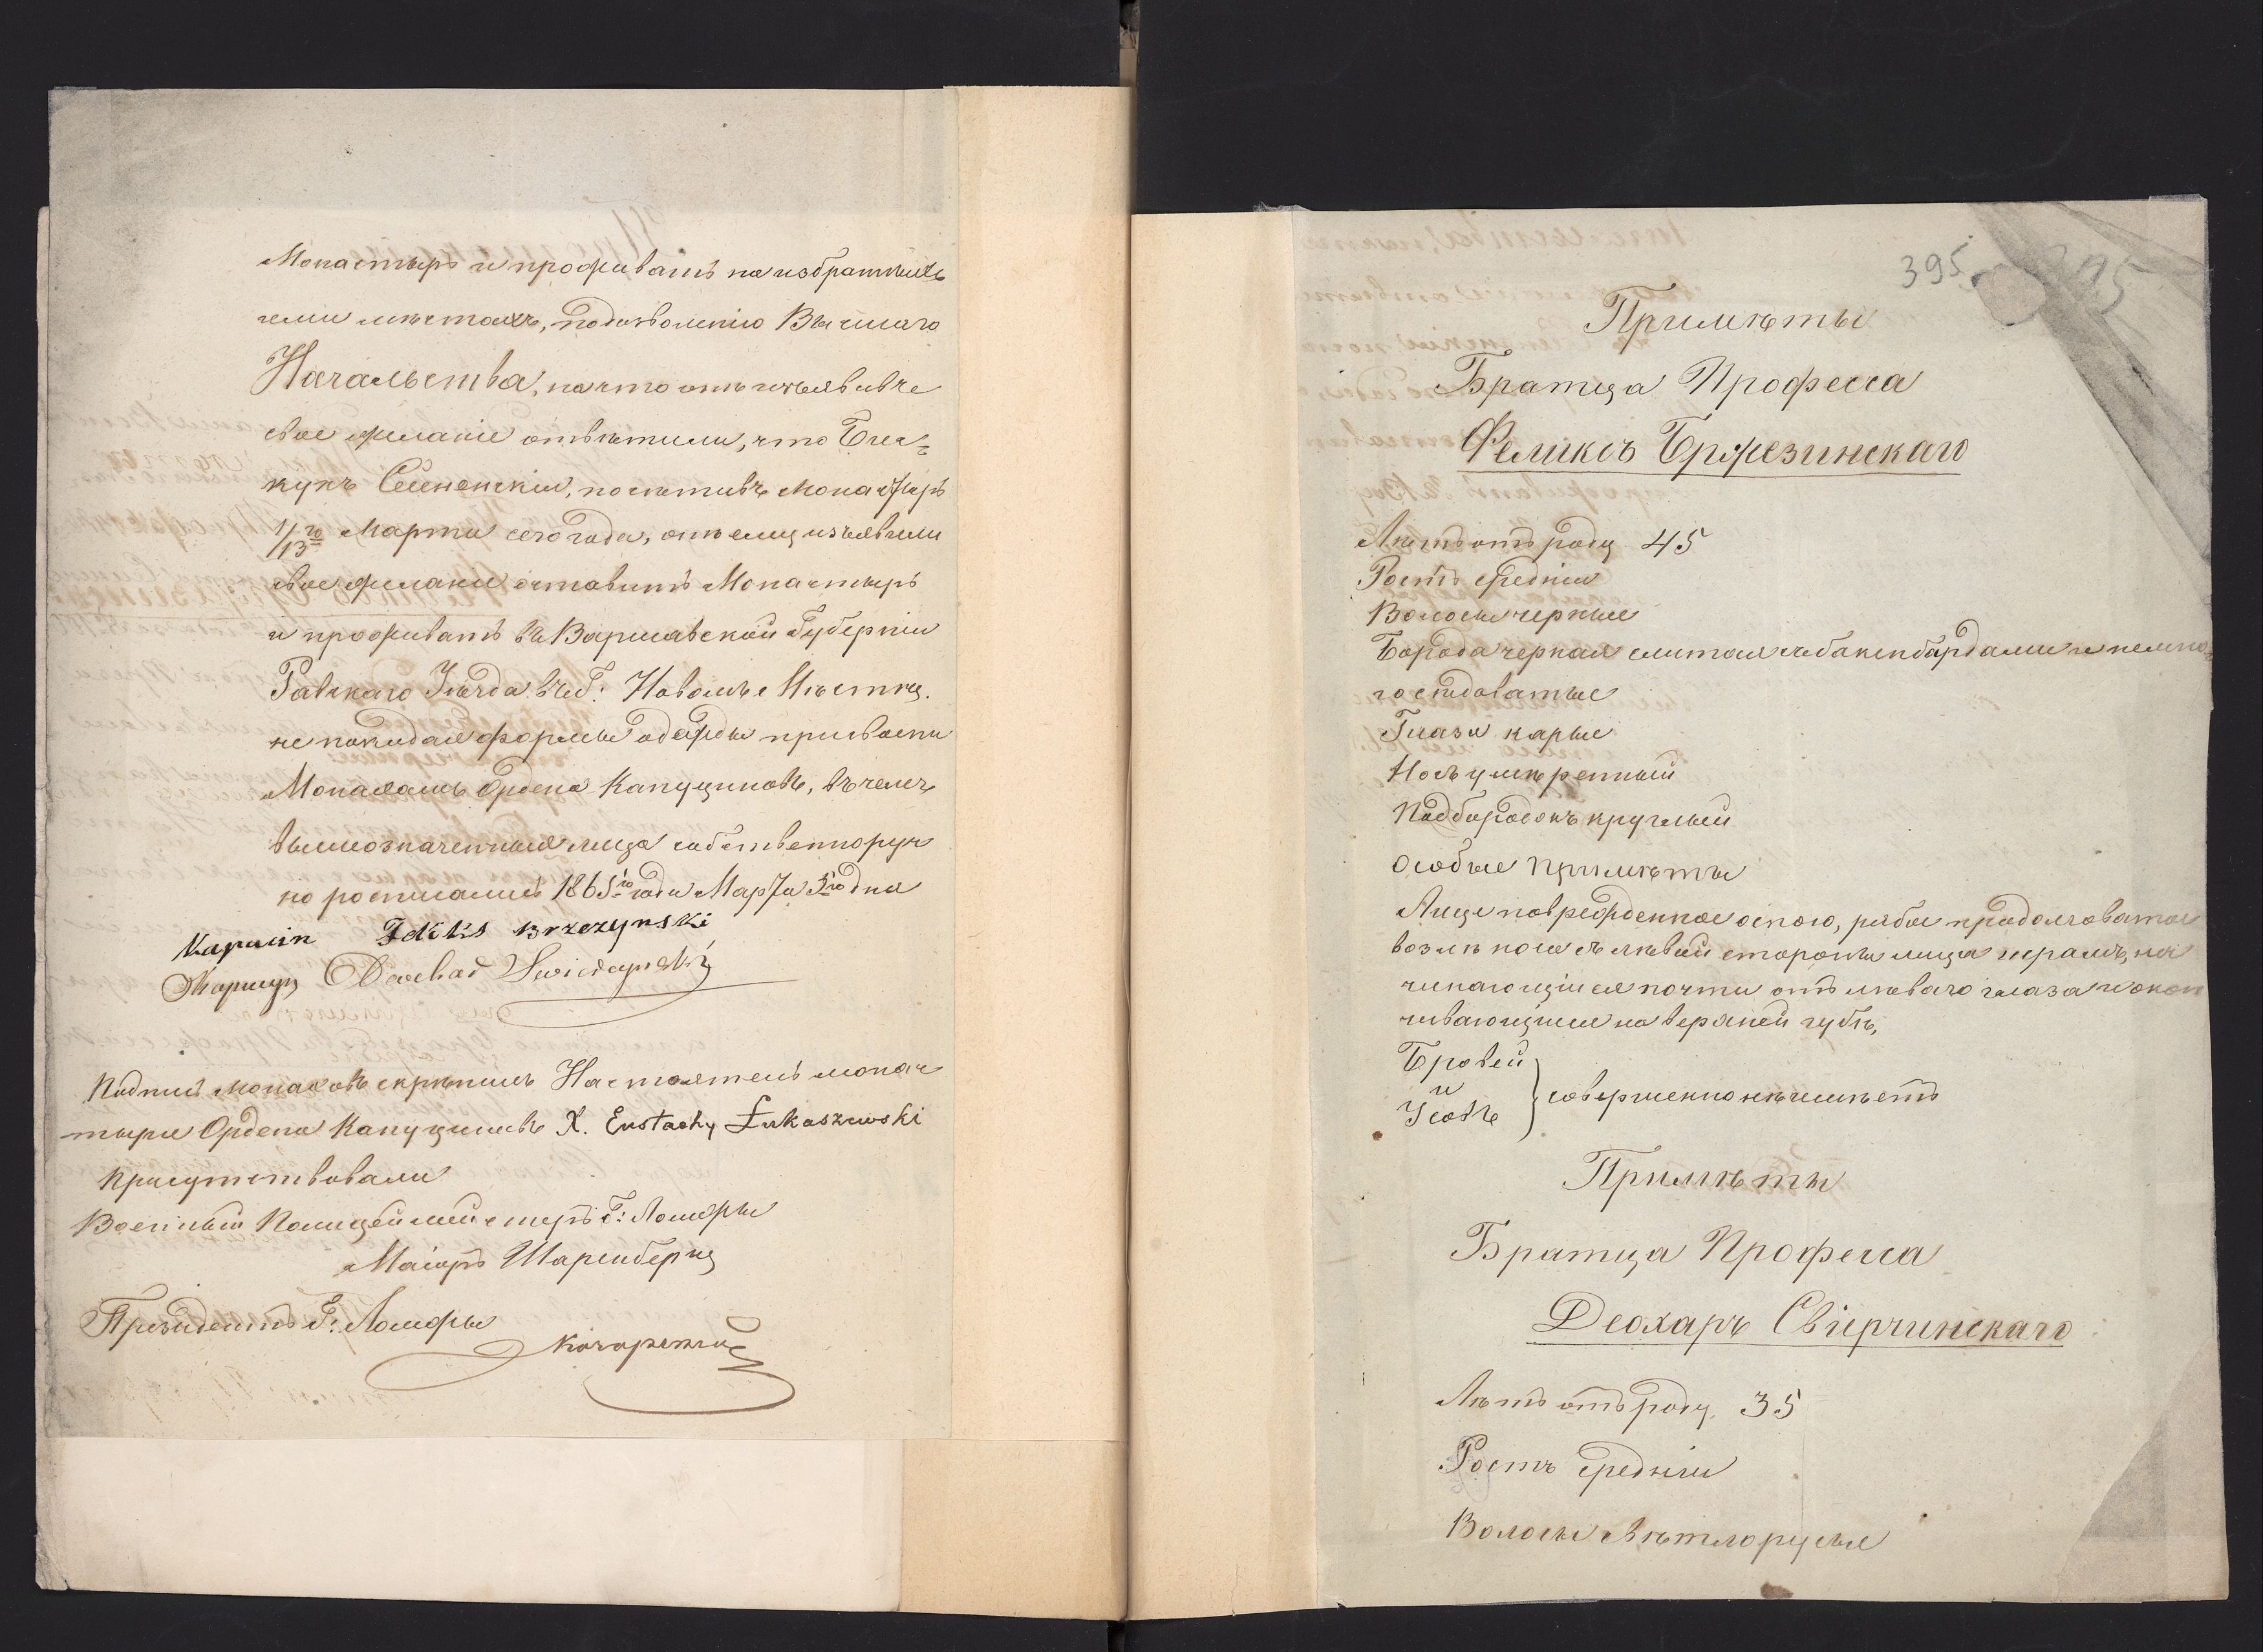 Монастырь и проживать на избранныхъ
ими местахъ, по дозволенію Высшаго
Начальства, на что они изъявивъ
свое желаніе ответили, что Епис=
купъ Сейненскій, посетивъ Монастырь
1/13го Марта сего года, они ему изъявили
свое желаніе оставить Монастырь
и проживать въ Варшавской Губерніи
Равскаго Уезда въ Г: Новомъ Месте.
не покидая формы одежды присвоен
Монахамъ Ордена Капуциновъ, въ чемъ
вышеозначенныя лица собственноруч
но росписались 1865го года Марта 5го дня
Kapucin Feliks Brzezynski
Deochad Swierczynski
Подпись монаховъ скрепилъ Настоятель монас
тыря Ордена Капуциновъ X. Eustachy Łukaszewski
Присутствовали
Военный Полицеймейстеръ Г: Ломжы
Маіоръ
Президентъ Г: Ломжы
395
Приметы
Братца Професса
Феликсъ Бржезинскаго
Летъ отъ роду 45
Ростъ средній
Волосы черные
Борода черная слитая съ бакенбардами и немно=
го седоватые
Глаза карые
Носъ умеренный
Подбородокъ круглый
Особые приметы
Лице поврежденное оспою, рябое продолговатое
возле носа съ левой стороны лица шрамъ, на
чинающійся почти отъ леваго глаза и окон
чивающійся на верхней губе,
Бровей
и
Усовъ
совершенно не имеетъ
Приметы
Братца Професса
Деохаръ Свіерчинскаго
Летъ отъ роду 35
Ростъ средній
Волосы светлорусые